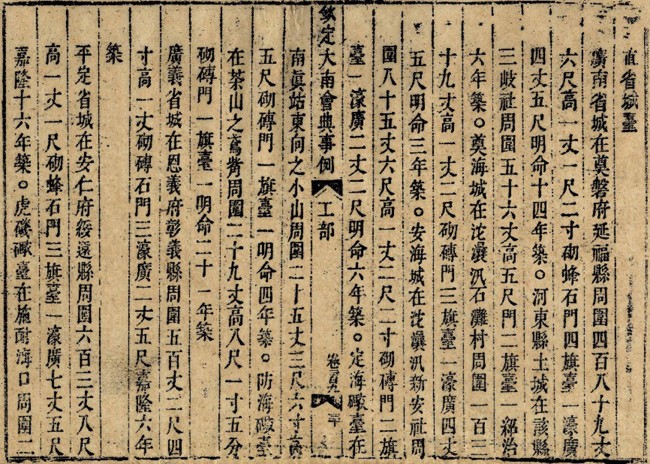 直省城臺
廣南省城在奠磐府延福縣周圍四百八十九丈
六尺高一丈一尺二寸砌蜂石門四旗臺一濠廣
四丈五尺明命十四年築。河東縣土城在該縣
三岐社周圍五十六丈高五尺門二旗臺一紹治
六年築。奠海城在沱㶞汛石灘村周圍一百三
十九丈高一丈二尺砌磚門三旗臺一濠廣四丈
五尺明命三年築。安海城在沱㶞汛新安社周
圍八十五丈六尺高一丈二尺二寸砌磚門二旗
臺一濠廣二丈二尺明命六年築。定海礮臺在
欽定大南會典事例 工部 卷二百九
南眞站東向之小山周圍二十五丈三尺六寸高
五尺砌磚門一旗臺一明命四年築。防海礮臺
在茶山之左周圍二十九丈高八尺一寸五分
砌磚門一旗臺一明命二十一年築
廣義省城在思義府彰義縣周圍五百丈二尺四
寸高一丈砌磚石門三濠廣二丈五尺嘉隆六年
築
平定省城在安仁府綏遠縣周圍六百三丈八尺
高一丈一尺砌蜂石門三旗臺一濠廣七丈五尺
嘉隆十六年築。虎磯礮臺在施耐海口周圍二